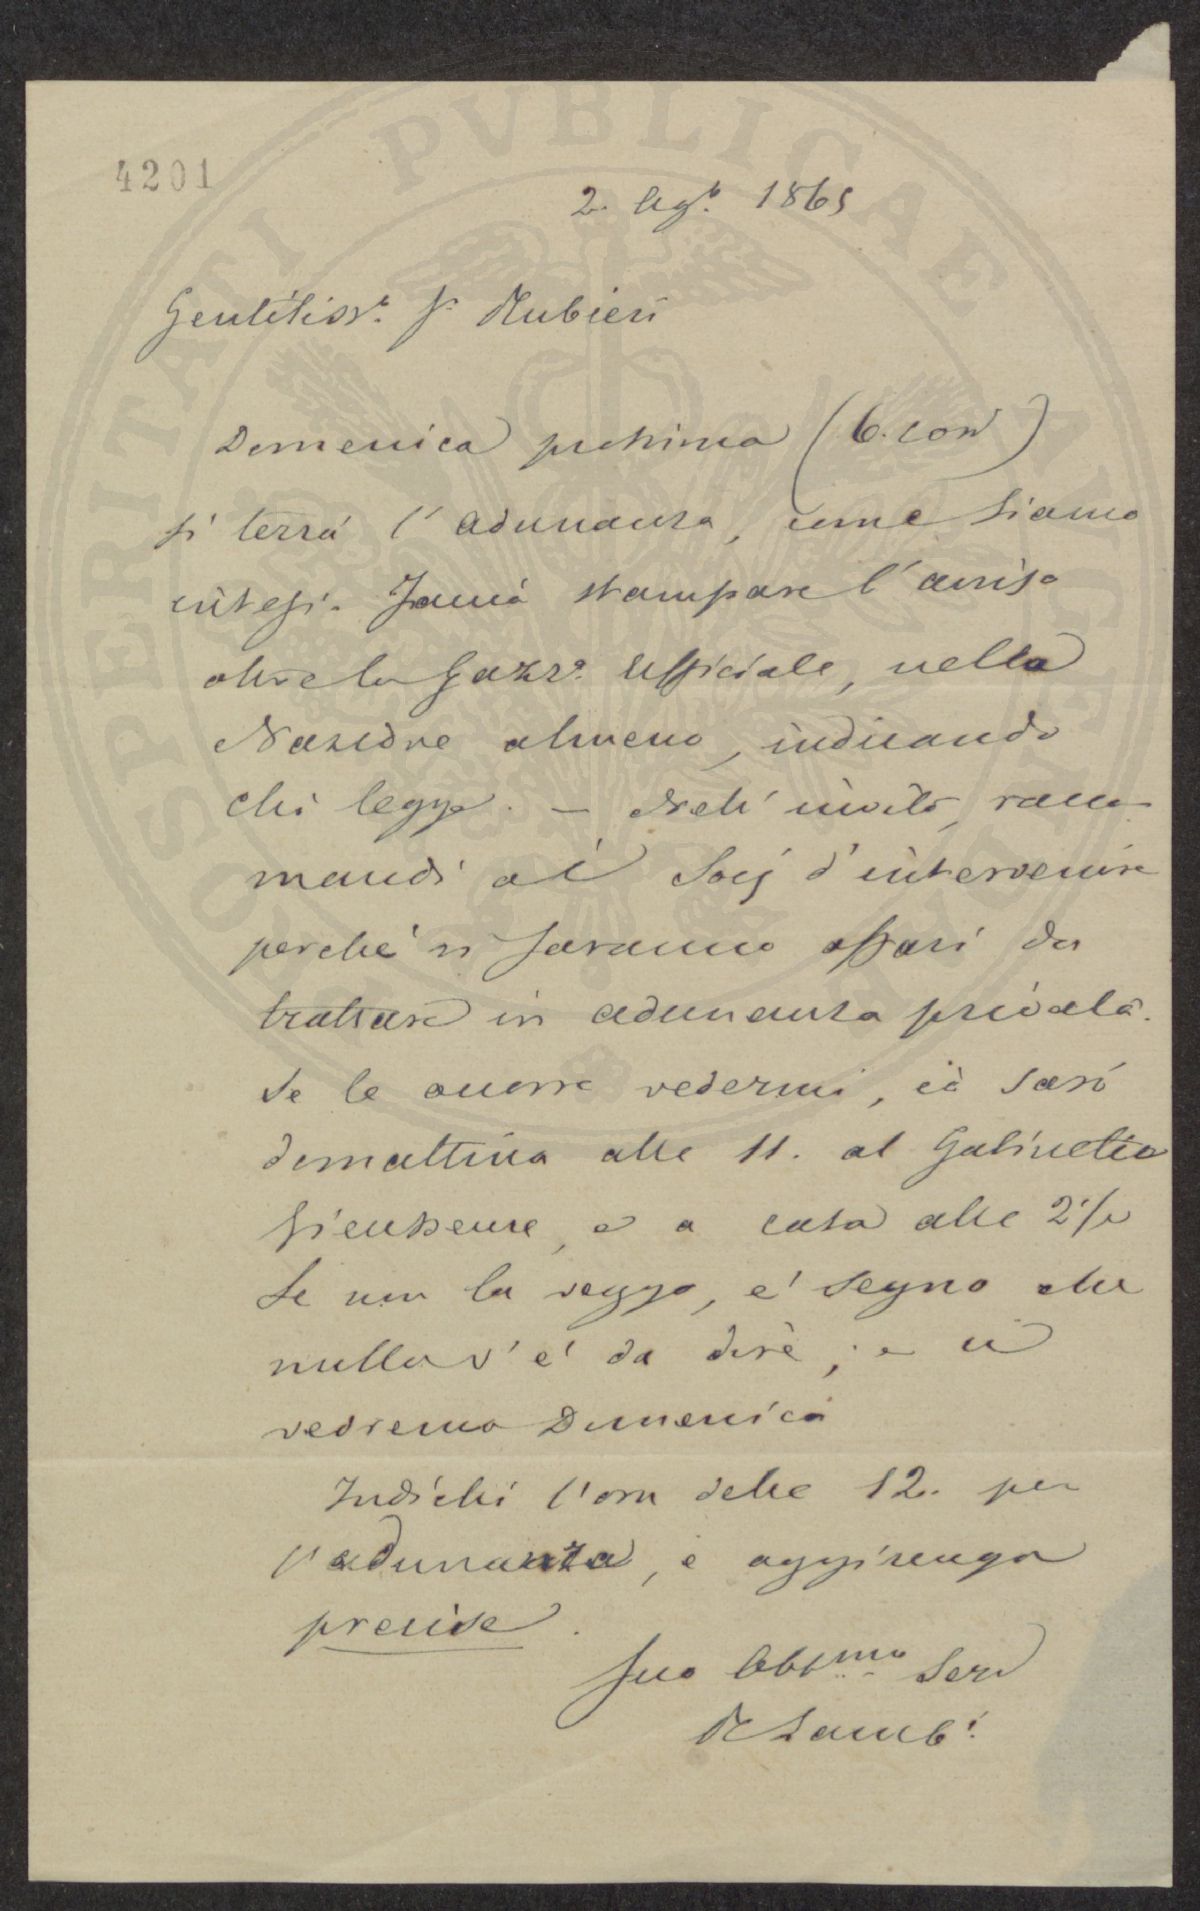 4201
2. Ag.to 1865
Gentiliss.o Sr Rubieri
Domenica prossima (6. corr)
si terrà l'adunanza, come siamo
intesi. Faccia stampare l'avviso
oltre la Gazz.a Ufficiale, nella
Nazione almeno, indicando
chi legge. — Nell'invito, racco
mandi ai Socj d'intervenire
perchè vi saranno affari da
trattare in adunanza privata.
Se le occorre vedermi, io sarò
domattina alle 11. al Gabinetto
Vieusseux, e a casa alle 2 1/2
Se non la veggo, è segno che
nulla v'è da dire; e ci
vedremo Domenica
Indichi l'ora delle 12. per
l'adunanza, e aggiunga
precise.
Suo Obbmo Serv
R Lamb.i
PROSPERITATI PVBLICAE AVGENDAE